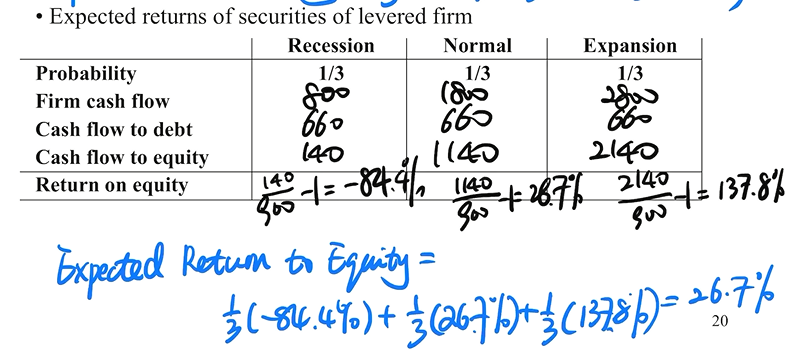 • Expected returns of securities of levered firm
Recession Normal Expansion
Probability 1/3 1/3 1/3
Firm cash flow 800 1800 2800
Cash flow to debt 660 660 660
Cash flow to equity 140 1140 2140
Return on equity 140/900 -1 = -84.4% 1140/900 -1 = 26.7% 2140/900 -1 = 137.8%
Expected Return to Equity =
1/3(-84.4%) + 1/3(26.7%) + 1/3(137.8%) = 26.7%
20